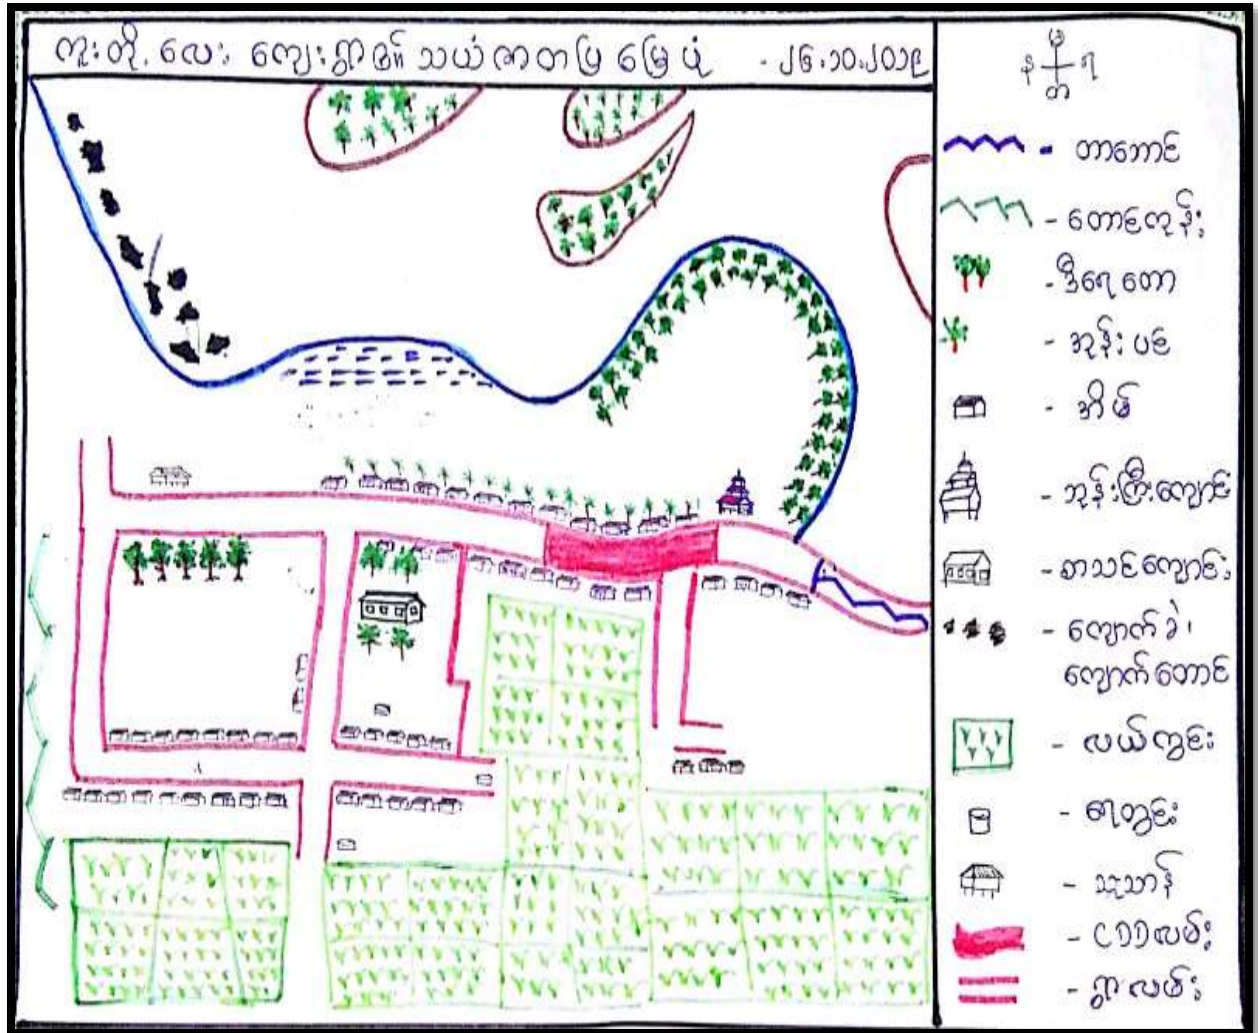 ကူးတို့လေး ကျေးရွာ၏ သယံဇာတပြ မြေပုံ - ၂၆.၁၀.၂၀၁၉
မ
န ရ
တ
- တာဘောင်
- တောင်ကုန်း
- ဒီရေတော
- အုန်းပင်
- အိမ်
- ဘုန်းကြီးကျောင်း
- စာသင်ကျောင်း
- ကျောက်ခဲ၊
ကျောက်တောင်
- လယ်ကွင်း
- ရေတွင်း
- သုသာန်
- CDDလမ်း
- ရွာလမ်း